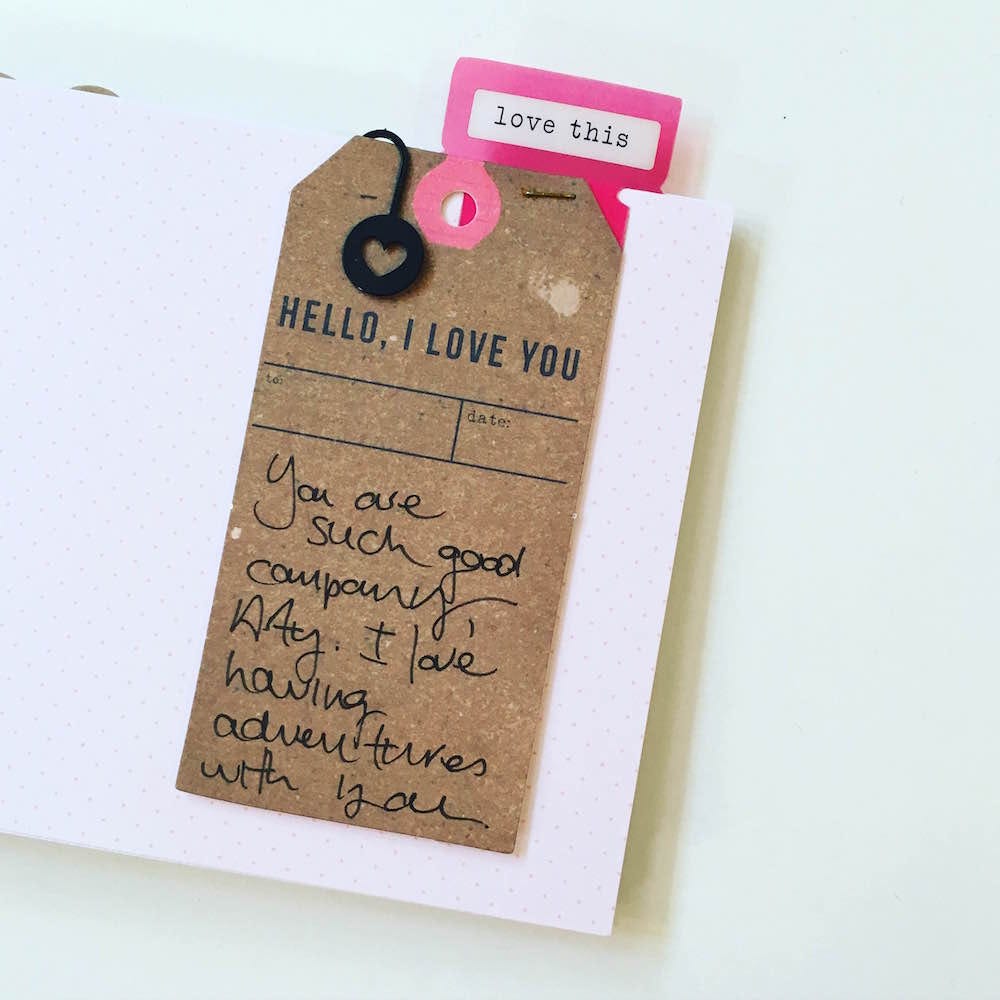 love this
HELLO, I LOVE YOU
to:
date:
You are
such good
company,
I love
having
adventures
with you.